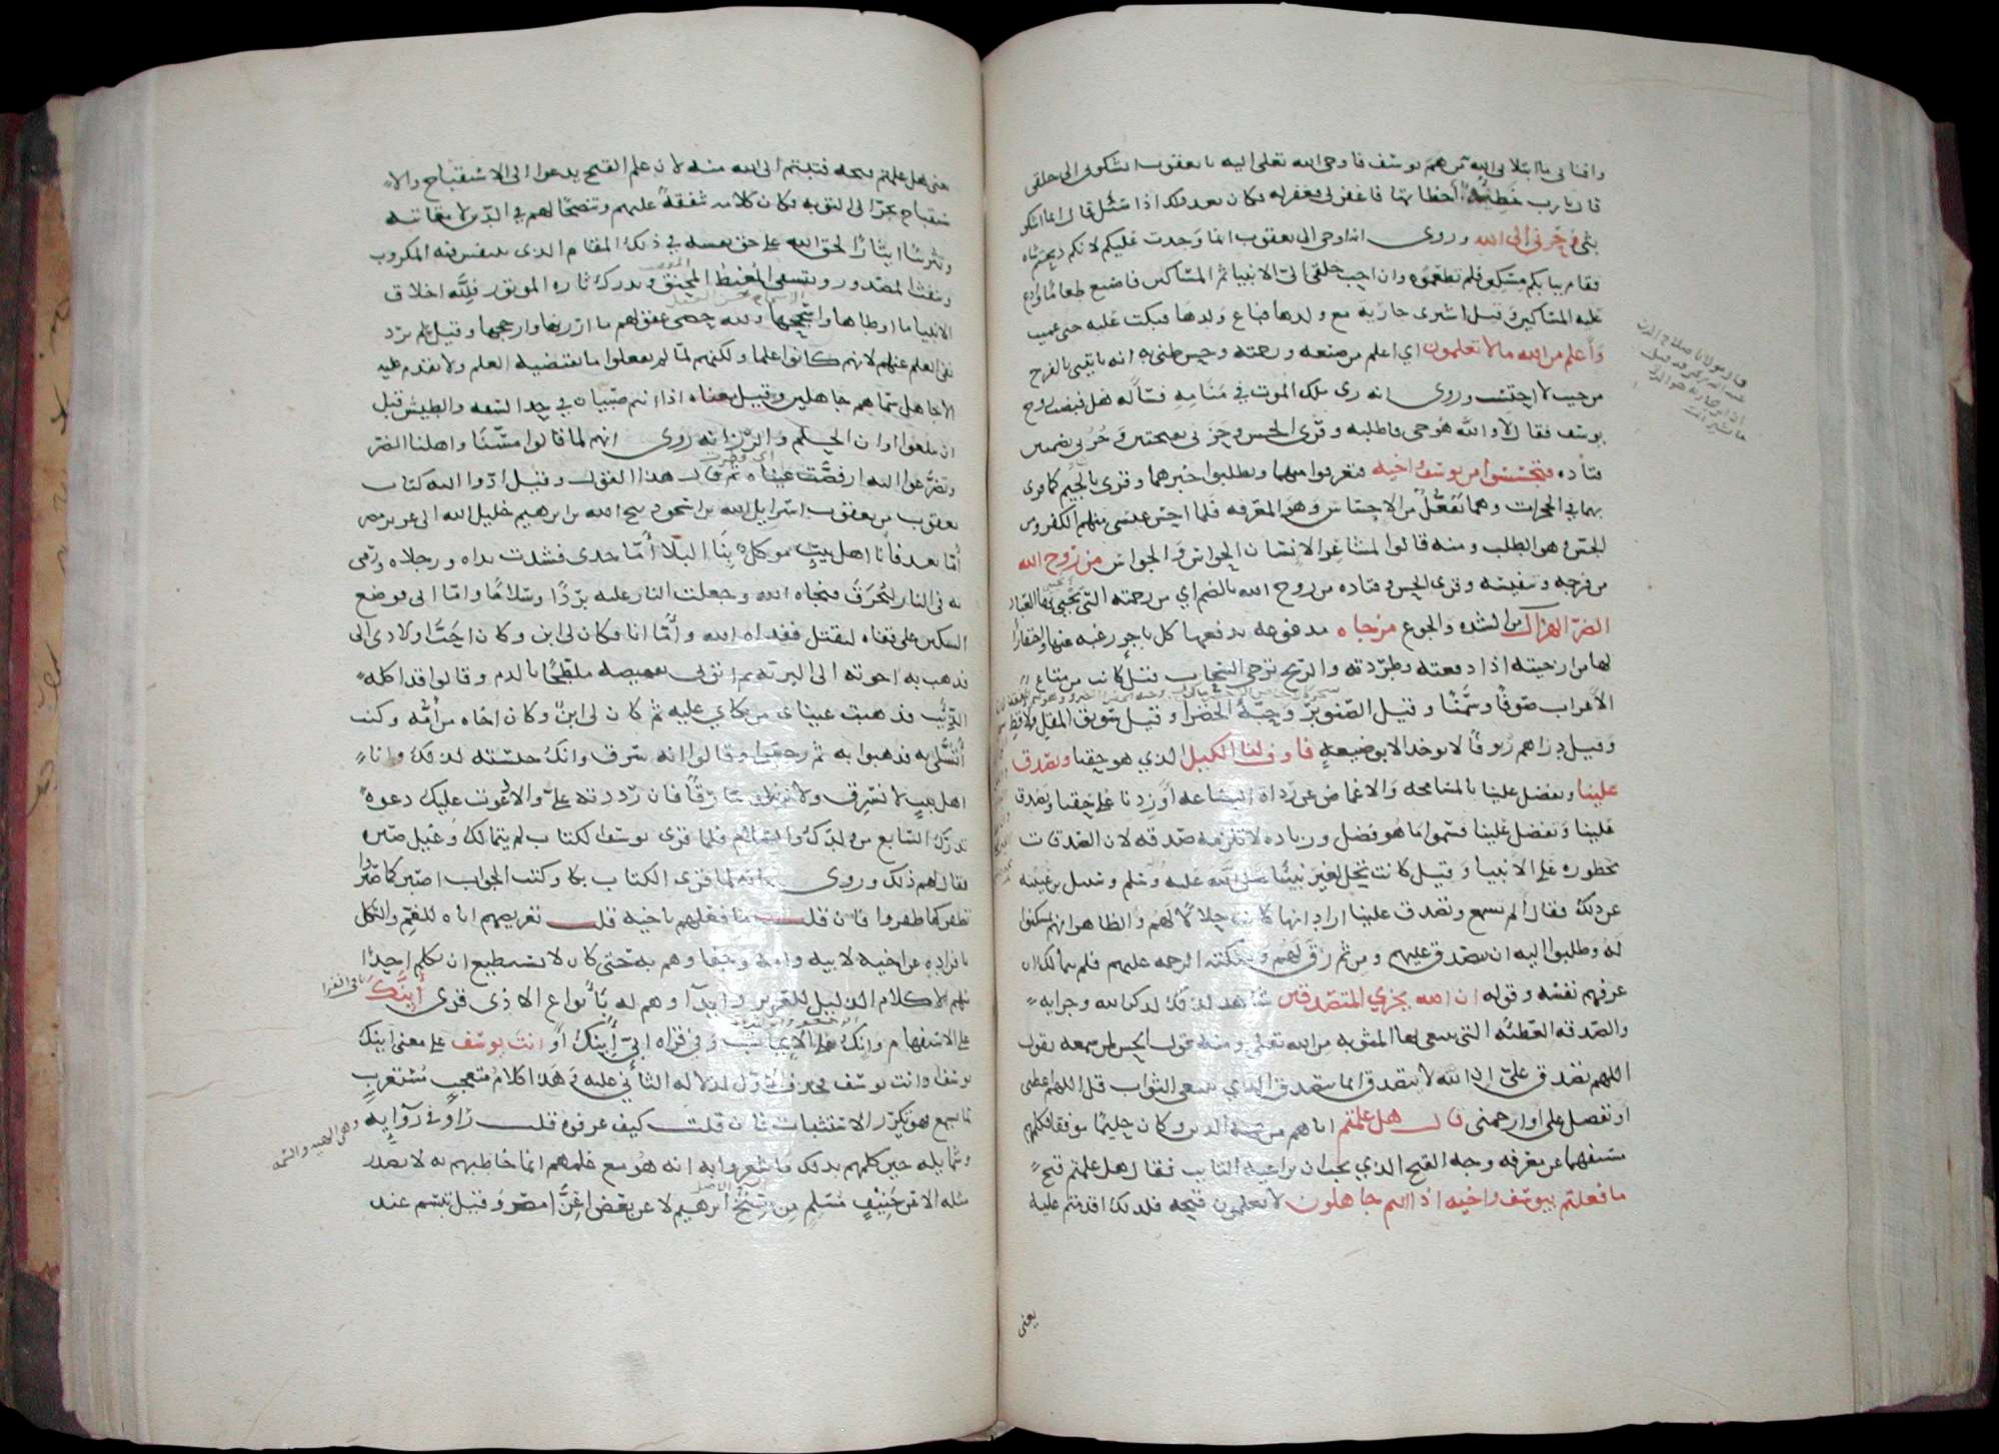 وافناني ما ابتلاني الله من هم يوسف فاوحى الله تعلى اليه يا يعقوب اتشكوني الى خلقي
قال يارب خطيئة اخطاتها فاغفر لي فغفر له فكان بعد ذلك اذا سئل قال انما اشكو
بثي وحزني الى الله وروى انه اوحى الى يعقوب انما وجدت عليكم لانكم ذبحتم شاه
فقام ببابكم مسكين فلم تطعموه وان احب خلقي الى الانبيا ثم المساكين فاصنع طعاما وادع
عليه المساكين وقيل اشترى جارية مع ولدها فباع ولدها فبكت عليه حتى عميت
واعلم من الله ما لا تعلمون اي اعلم من صنعه ورحمته وحسن ظني به انه ياتيني بالفرج
من حيث لا احتسب وروى انه رى ملك الموت في منامه فسأله هل قبضت روح
يوسف فقال لا والله هو حي فاطلبه وقرى الحسن وحزني بفتحتين وحزني بضمتين
قتاده فتحسسوا من يوسف واخيه فتعرفوا منهما وتطلبوا خبرهما وقرى بالجيم كما قرى
بهما في الحجرات وهما تفعل من الاحساس وهو المعرفه فلما احس عيسى منهم الكفر ومن
الجس وهو الطلب ومنه قالوا لمشاعر الانسان الحواس والجواس من روح الله
من فرجه وتنفيسه وقرى الحسن وقتاده من روح الله بالضم اي من رحمته التي يحيى بها العباد
الضر الهزال من الشده والجوع مزجاه مدفوعه يدفعها كل تاجر رغبه عنها واحتقارا
لها من ازجيته اذا دفعته وطردته والريح تزجي السحاب قيل كانت من متاع
الاعراب صوفا وسمنا وقيل الصنوبر وحبة الخضرا وقيل سويق المقل والاقط
وقيل دراهم زيوفا لا توخذ الا بوضيعة فاوف لنا الكيل الذي هو حقنا وتصدق
علينا وتفضل علينا بالمسامحه والاغماض عن رداة البضاعه او زدنا على حقنا وتصدق
علينا وتفضل علينا فسموا ما هو فضل وزياده لا تلزمه صدقه لان الصدقات
محظوره على الانبيا وقيل كانت تحل لغير نبينا صلى الله عليه وسلم وسئل بن عيينه
عن ذلك فقال الم تسمع وتصدق علينا اراد انها كانت حلالا لهم والظاهر انهم تمسكنوا
له وطلبوا اليه ان يتصدق عليهم ومن ثم رق لهم وملكته الرحمه عليهم فلم يتمالك ان
عرفهم نفسه وقوله ان الله يجزي المتصدقين شاهد لذلك لذكر الله وجزايه
والصدقه العطيه التي تبتغى بها المثوبه من الله تعلى ومنه قول الحسن لمن سمعه يقول
اللهم تصدق علي ان الله لا يتصدق انما يتصدق الذي يبتغي الثواب قل اللهم اعطني
او تفضل علي او ارحمني قال هل علمتم اتاهم من جهة الدين وكان حليما موفقا فكلمهم
مستفهما عن معرفه وجه القبح الذي يجب ان يراعيه التايب فقال هل علمتم قبح
ما فعلتم بيوسف واخيه اذ انتم جاهلون لا تعلمون قبحه فلذلك اقدمتم عليه
يعني
يعني هل علمتم قبحه فتبتم الى الله منه لان علم القبح يدعوا الى الاستقباح والا
ستقباح يجر الى التوبه فكان كلامه شفقة عليهم وتنصحا لهم في الدين لا معاتبه
وتثريبا ايثارا لحق الله على حق نفسه في ذلك المقام الذي يتنفس فيه المكروب
وينفث المصدور ويتشفى المغيظ المحنق ويدرك ثاره الموتور فلله اخلاق
الانبيا ما اوطاها واسجحها ولله حصى عقولهم ما ارزنها وارجحها وقيل لم يرد
نفي العلم عنهم لانهم كانوا علما ولكنهم لما لم يفعلوا ما يقتضيه العلم ولا يقدم عليه
الا جاهل سماهم جاهلين وقيل معناه اذ انتم صبيان في حد السفه والطيش قبل
ان تبلغوا اوان الحلم والرزانه روى انهم لما قالوا مسنا واهلنا الضر
وتضرعوا اليه ارفضت عيناه ثم قال هذا القول وقيل ادوا اليه كتاب
يعقوب من يعقوب اسرايل الله بن اسحق ذبيح الله بن ابرهيم خليل الله الى عزيز مصر
أما بعد فانا اهل بيت موكل بنا البلا أما جدي فشدت يداه ورجلاه ورمى
به في النار ليحرق فنجاه الله وجعلت النار عليه بردا وسلاما واما ابي فوضع
السكين على قفاه ليقتل ففداه الله وأما انا فكان لي ابن وكان احب اولادي الى
فذهب به اخوته الى البرية ثم اتوني بقميصه ملطخا بالدم وقالوا قد اكله
الذيب فذهبت عيناى من بكاي عليه ثم كان لي ابن وكان اخاه من أمه وكنت
أتسلى به فذهبوا به ثم رجعوا وقالوا انه سرق وانك حبسته لذلك وانا
اهل بيت لا نسرق ولا نلد سارقا فان رددته علي والا دعوت عليك دعوة
تدرك السابع من ولدك والسلام فلما قرى يوسف الكتاب لم يتمالك وعيل صبره
فقال لهم ذلك وروى انه لما قرى الكتاب بكا وكتب الجواب اصبر كما صبروا
تظفر كما ظفروا فان قلت ما فعلهم باخيه قلت تعريضهم اياه للغم والثكل
بافراده عن اخيه لابيه وامه وجفاوهم به حتى كان لا يستطيع ان يكلم احدا
منهم الا كلام الذليل للعزيز وايذاوهم له بأنواع الاذى قرى أينك
على الاستفهام وانك على الايجاب وفي قراه ابي أينك او انت يوسف على معنى اينك
يوسف او انت يوسف فحذف الاول لدلاله الثاني عليه وهذا كلام متعجب مستغرب
لما يسمع فهو يكرر الاستثبات فان قلت كيف عرفوه قلت راوا في روايه
وشمايله حين كلمهم بذلك ما شعروا به انه هو مع علمهم انما خاطبهم به لا يصدر
مثله الا عن حنيف مسلم من سنخ ابرهيم لا عن بعض اعزا مصر وقيل تبسم عند
باقي القرا
وهي الهيه والسمه